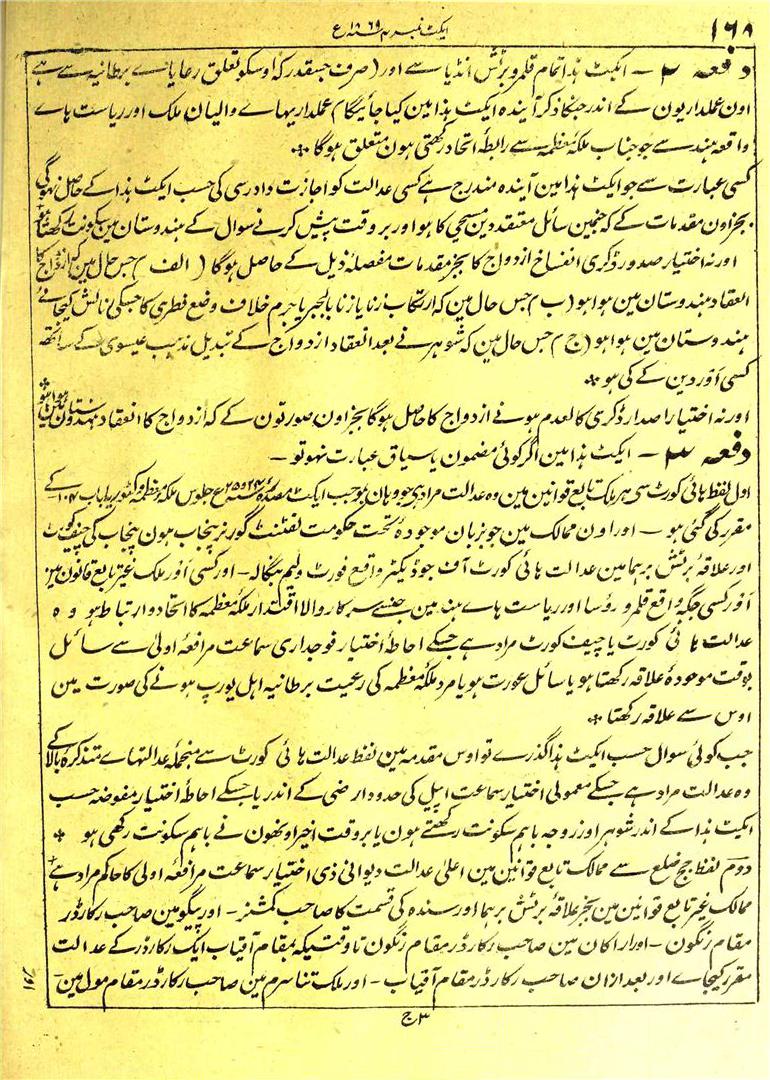 ۱۶۸
ایکٹ نمبر ۴ سنہ ۱۸۶۹ ع
دفعہ ۲ — ایکٹ ہذا تمام قلمرو برٹش انڈیا سے اور (صرف جسقدر کہ اوسکو تعلق رعایاے برطانیہ سے ہے
اون عملداریون کے اندر جنکا ذکر آیندہ ایکٹ ہذا مین کیا جائیگا) عملداریہاے والیان ملک اور ریاست ہاے
واقعہ ہند سے جو جناب ملکۂ معظمہ سے رابطۂ اتحاد رکھتی ہون متعلق ہوگا ٭
کسی عبارت سے جو ایکٹ ہذا مین آیندہ مندرج ہے کسی عدالت کو اجازت دادرسی کی حسب ایکٹ ہذا کے حاصل نہوگی
بجز اون مقدمات کے کہ جنمین سائل معتقد دین مسیحی کا ہو اور بروقت پیش کرنے سوال کے ہندوستان مین سکونت رکھتا ہو
اور نہ اختیار صدور ڈکری انفساخ ازدواج کا بجز مقدمات مفصلۂ ذیل کے حاصل ہوگا (الف) جس حال مین کہ ازدواج کا
انعقاد ہندوستان مین ہوا ہو (ب) جس حال مین کہ ارتکاب زنا یا زنا بالجبر یا جرم خلاف وضع فطری کا جسکی نالش کیجائے
ہندوستان مین ہوا ہو (ج) جس حال مین کہ شوہر نے بعد انعقاد ازدواج کے تبدیل مذہب عیسوی کے ساتھ
کسی اور دین کے کی ہو ٭
اور نہ اختیار اصدار ڈکری کالعدم ہونے ازدواج کا حاصل ہوگا بجز اون صورتون کے کہ ازدواج کا انعقاد ہندوستان مین ہوا ہو ٭
دفعہ ۳ — ایکٹ ہذا مین اگر کوئی مضمون یا سیاق عبارت نہو تو —
اول لفظ ہائی کورٹ سی ہر ملک تابع قوانین مین وہ عدالت مراد ہی جو وہان بموجب ایکٹ مصدرۂ سنہ ۲۴ و ۲۵ ع جلوس ملکۂ معظمہ وکٹوریہ باب ۱۰۴ کے
مقرر کی گئی ہو — اور اون ممالک مین جو بزبان موجودہ تحت حکومت لفٹنٹ گورنر پنجاب ہون پنجاب کی چیف کورٹ
اور علاقۂ برٹش برہما مین عدالت ہائی کورٹ آف جوڈیکیچر واقع فورٹ ولیم بنگالہ — اور کسی اور ملک غیر تابع قانون مین
اور کسی جگہ واقع قلمرو رؤسا اور ریاست ہاے ہند مین جنسے سرکار والا اقتدار ملکۂ معظمہ کا اتحاد و ارتباط ہو وہ
عدالت ہائی کورٹ یا چیف کورٹ مراد ہے جسکے احاطۂ اختیار فوجداری سماعت مرافعۂ اولیٰ سے سائل
بوقت موجودہ علاقہ رکھتا ہو یا سائل عورت ہو یا مرد ملکۂ معظمہ کی رعیت برطانیہ اہل یورپ ہونے کی صورت مین
اوس سے علاقہ رکھتا ٭
جب کوئی سوال حسب ایکٹ ہذا گذرے تو اوس مقدمہ مین لفظ عدالت ہائی کورٹ سے منجملہ عدالتہاے متذکرۂ بالا کے
وہ عدالت مراد ہے جسکے معمولی اختیار سماعت اپیل کی حدود ارضی کے اندر یا جسکے احاطۂ اختیار مفوضہ حسب
ایکٹ ہذا کے اندر شوہر اور زوجہ باہم سکونت رکھتے ہون یا بروقت اخیر اونھون نے باہم سکونت رکھی ہو ٭
دوم لفظ جج ضلع سے ممالک تابع قوانین مین اعلیٰ عدالت دیوانی ذی اختیار سماعت مرافعۂ اولی کا حاکم مراد ہے
ممالک غیر تابع قوانین مین بجز علاقۂ برٹش برہما اور سندہ کی قسمت کا صاحب کمشنر — اور پیگو مین صاحب رکارڈر
مقام رنگون — اور اراکان مین صاحب رکارڈر مقام رنگون تا وقتیکہ بمقام آقیاب ایک رکارڈر کے عدالت
مقرر کیجاے اور بعد ازان صاحب رکارڈر مقام آقیاب — اور ملک تناسرم مین صاحب رکارڈر مقام مول مین
اور
۳ ج